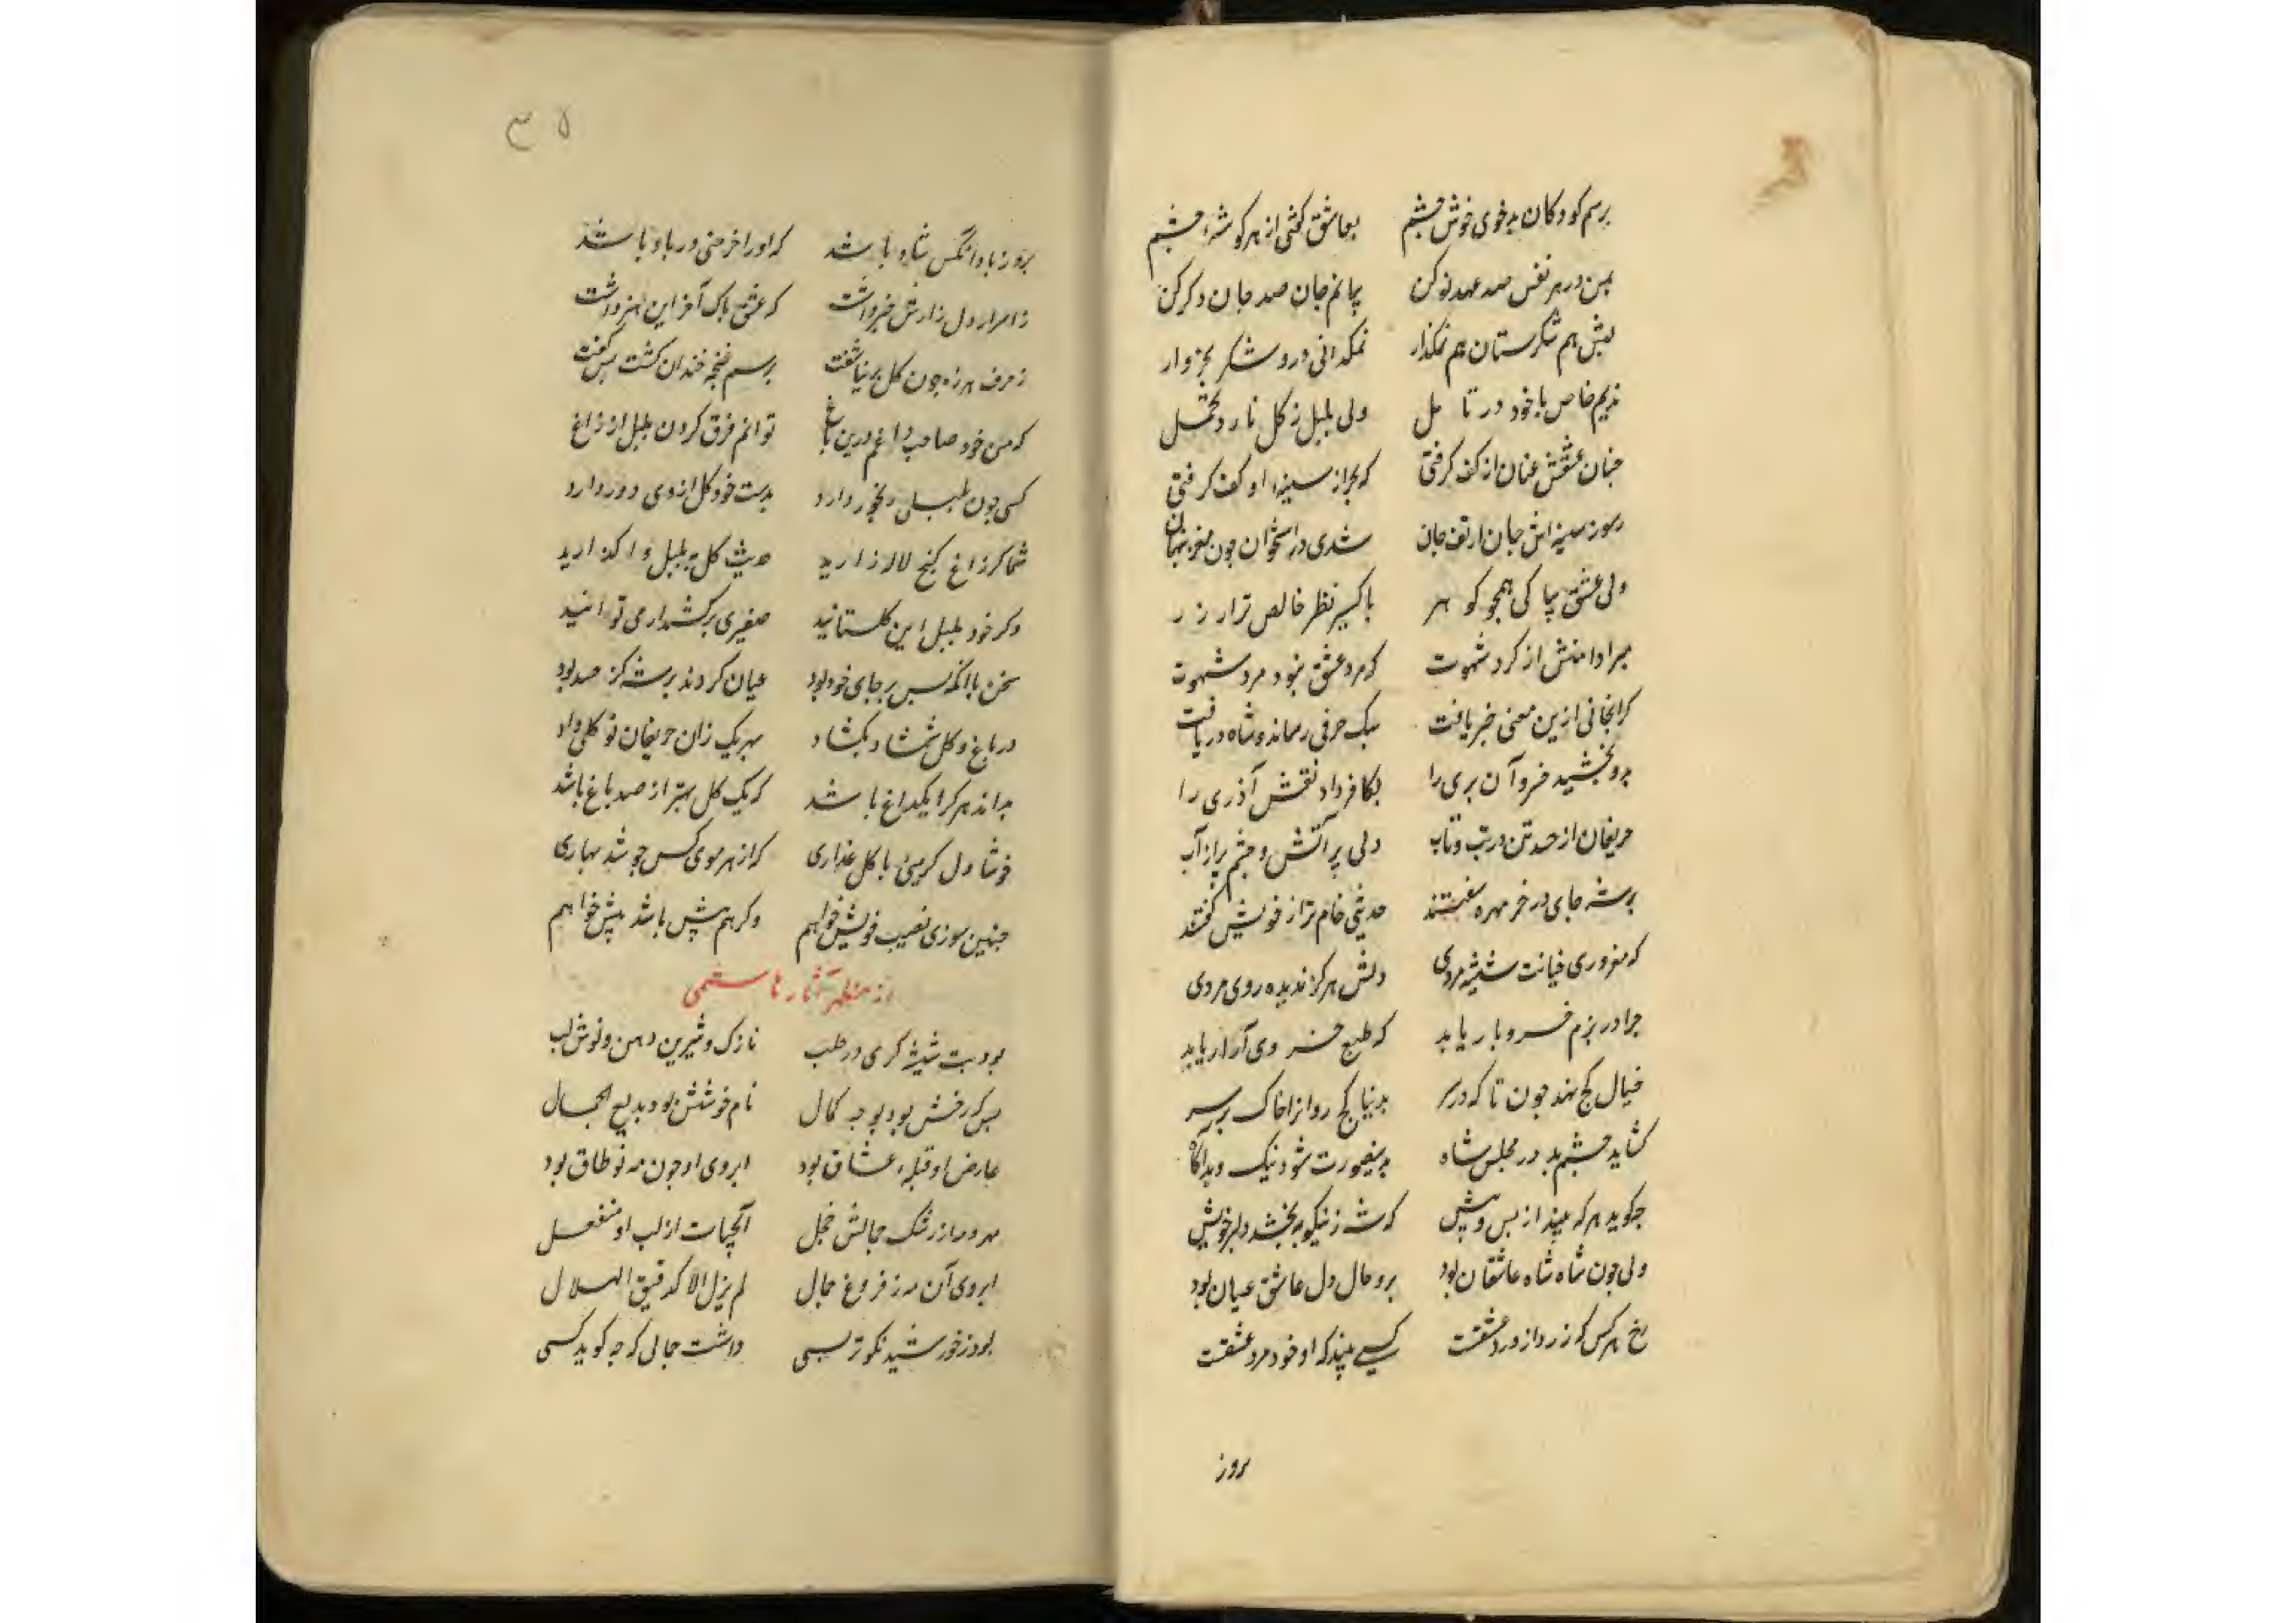 برسم کودکان بدخوی خوش خشم بعاشق کشی از هر کوشهٔ چشم
بمن در هر نفس صد عهد نو کن بجانم جان صد جان در کرو کن
لبش هم شکرستان هم نمکزار نمکدانی درو شکر بخروار
ندیم خاص با خود در تامل ولی بلبل ز کل نارد تحمل
جنان عشقش عنان از کف کرفتی که بحر از سینهٔ او کف کرفتی
ز سوز سینه‌اش جان از تف جان شدی در استخوان جون مغز پنهان
ولی عشق بپاکی همجو کوهر باکسیر نظر خالص‌تر از زر
مبرا دامنش از کرد شهوت که مرد عشق نبود مرد شهوت
کرانجانی ازین معنی خبر یافت سبک حرفی رساند و شاه دریافت
بدو بخشید خسرو آن پری را بکافر داد نقش آذری را
حریفان از حسد تن در تب و تاب دلی پر آتش و چشم پر از آب
برشه جای در خرمهره سفتند حدیثی خام‌تر از خویش کفتند
که مغروری خیانت شیشه مردی دلش هرکز ندیده روی مردی
جرا در بزم خسرو بار یابد که طبع خسروی آزار یابد
خیال کج نهد جون تا که در سر بدنیا کج روانرا خاک بر سر
کشاید چشم بد در مجلس شاه بدینصورت شود نیک و بد آکاه
جکوید هر که بیند از پس و پیش که شه ز نیکونه بخشد دلبر خویش
ولی جون شاه شاه عاشقان بود برو حال دل عاشق عیان بود
رخ هر کس که زرد از درد عشقست کسی بیند که او خود مرد عشقست
بروز
۳۵
بروز باد آنکس شاد باشد که او را خرمنی در باد باشد
ز اسرار دل زارش خبر داشت که عشق پاک آخر این هنر داشت
ز حرف هرزه جون کل بر نیاشفت برسم غنچه خندان کشت پس کفت
که من خود صاحب داغم درین باغ توانم فرق کردن بلبل از زاغ
کسی جون بلبلی رنجور دارد بدست خود کل از وی دور دارد
شما کر زاغ کنج لاله‌زارید حدیث کل به بلبل واکذارید
وکر خود بلبل این کلستانید صفیری برکشید ار می‌توانید
سخن با آنکه بس بر جای خود بود عیان کردند بر شه کز حسد بود
در باغ و کل شمشاد بکشاد بهر یک زان حریفان نو کلی داد
بداند هر کرا یکداغ باشد که یک کل بهتر از صد باغ باشد
خوشا دل کرمیی با کل عذاری کز هر موی کس جوشد بهاری
جنین سوزی نصیب خویش خواهم وکر هم پیش باشد بیش خواهم
از مظهر آثار هاشمی
بود بت شیشه کری در حلب نازک و شیرین دهن و نوش لب
بس که رخش بود بوجه کمال نام خوشش بود بدیع الجمال
عارض او قبلهٔ عشاق بود ابروی او جون مه نو طاق بود
مهر و مه از رشک جمالش خجل آبحیات از لب او منفعل
ابروی آن مه ز فروغ جمال لم یزل الا کدقیق الهلال
بود ز خورشید نکوتر بسی داشت جمالی که جه کوید کسی